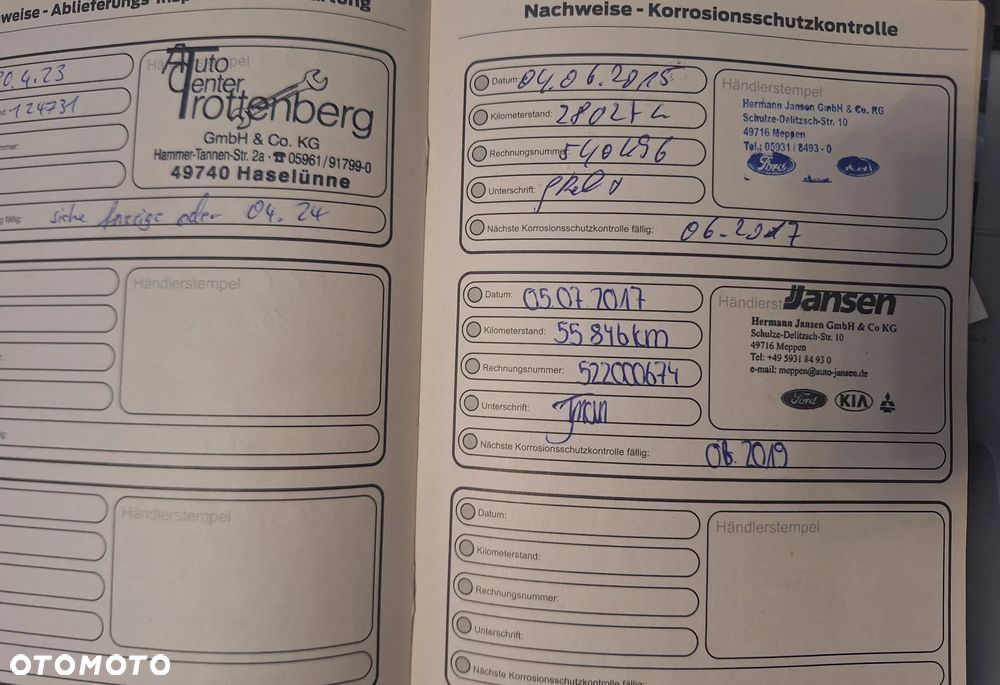 weise - Ablieferungs-
Händlerstempel
Auto
Center
Trottenberg
GmbH & Co. KG
Hammer-Tannen-Str. 2a · ☎ 05961/91799-0
49740 Haselünne
20.4.23
124731
siehe Anzeige oder 04.24
Händlerstempel
Händlerstempel
Nachweise - Korrosionsschutzkontrolle
Datum: 04.06.2015
Kilometerstand:
Rechnungsnummer:
Unterschrift:
Nächste Korrosionsschutzkontrolle fällig: 06.2017
Händlerstempel
Hermann Jansen GmbH & Co. KG
Schulze-Delitzsch-Str. 10
49716 Meppen
Tel.: 05931 / 8493 - 0
Ford
Datum: 05.07.2017
Kilometerstand: 55 846km
Rechnungsnummer: 522000674
Unterschrift:
Nächste Korrosionsschutzkontrolle fällig: 06.2019
Jansen
Hermann Jansen GmbH & Co KG
Schulze-Delitzsch-Str. 10
49716 Meppen
Tel: +49 5931 84 93 0
e-mail: meppen@auto-jansen.de
Ford KIA
Datum:
Kilometerstand:
Rechnungsnummer:
Unterschrift:
Nächste Korrosionsschutzkontrolle fällig:
Händlerstempel
OTOMOTO